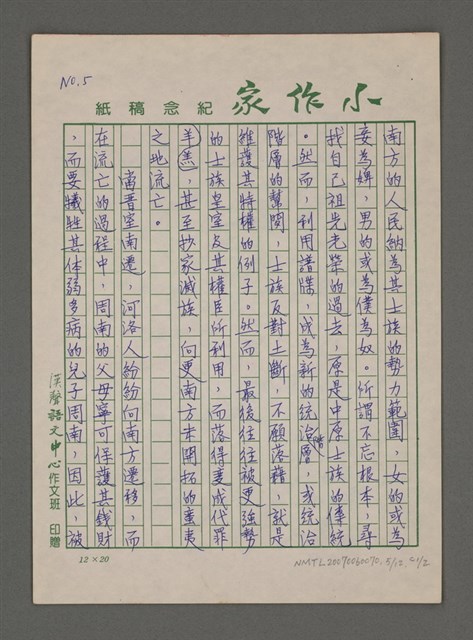 NO.5
小作家紀念稿紙
南方的人民納為其士族的勢力範圍，女的或為
妾為婢，男的或為僕為奴。所謂不忘根本，尋
找自己祖先光榮的過去，原是中原士族的傳統
。然而，利用譜牒，成為新的統治階層，或統治
階層的幫閒，士族反對土斷，不願落籍，就是
維護其特權的例子。然而，最後往往被更強勢
的士族皇室及其權臣所利用，而落得變成代罪
羊羔，甚至抄家滅族，向更南方未開拓的蛮夷
之地流亡。
當晋室南遷，河洛人紛紛向南方遷移，而
在流亡的過程中，周南的父母寧可保護其錢財
，而要犧牲其体弱多病的兒子周南，因此，被
漢聲語文中心作文班 印贈
12×20
NMTL20070060070, 5/12, c1/2